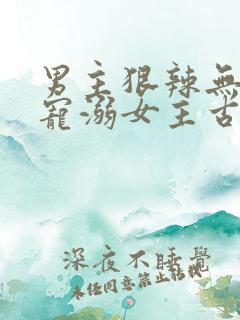 男主狠辣無
寵溺女主古
深夜不睡覺
未任同意禁止轉載